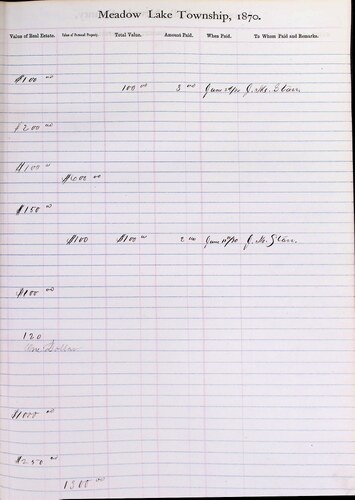 Meadow Lake Township, 1870.
Value of Real Estate. Value of Personal Property. Total Value. Amount Paid. When Paid. To Whom Paid and Remarks.
$100 00
100 00 3 00 June J. M.
$200 00
$100 00
$600 00
$150 00
$100 $100 00 2 00 June J. M.
$100 00
120
One Dollar
$1000 00
$250 00
1500 00